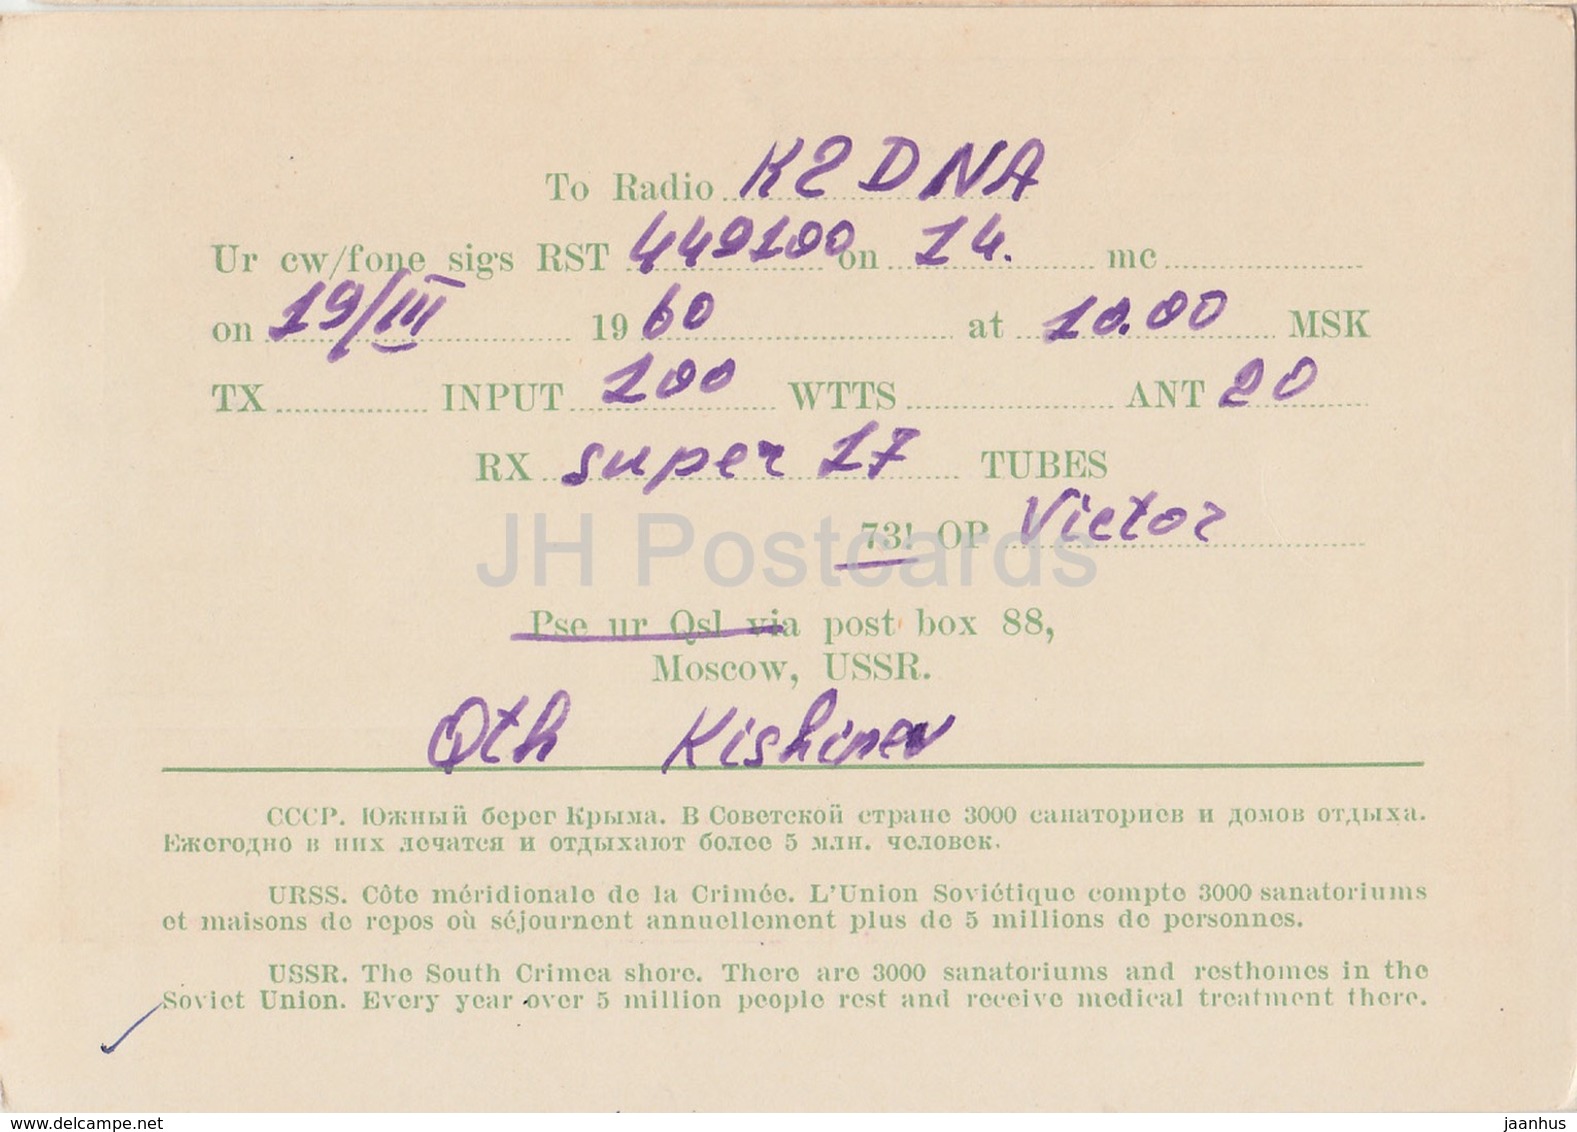 To Radio K2DNA
Ur cw/fone sigs RST 449100 on 14. mc
on 19/III 1960 at 10.00 MSK
TX INPUT 100 WTTS ANT 20
RX super 17 TUBES
73! OP Victor
JH Postcards
Pse ur Qsl via post box 88,
Moscow, USSR.
Qth Kishinev
СССР. Южный берег Крыма. В Советской стране 3000 санаториев и домов отдыха.
Ежегодно в них лечатся и отдыхают более 5 млн. человек.
URSS. Côte méridionale de la Crimée. L'Union Soviétique compte 3000 sanatoriums
et maisons de repos où séjournent annuellement plus de 5 millions de personnes.
USSR. The South Crimea shore. There are 3000 sanatoriums and resthomes in the
Soviet Union. Every year over 5 million people rest and receive medical treatment there.
www.delcampe.net
jaanhus